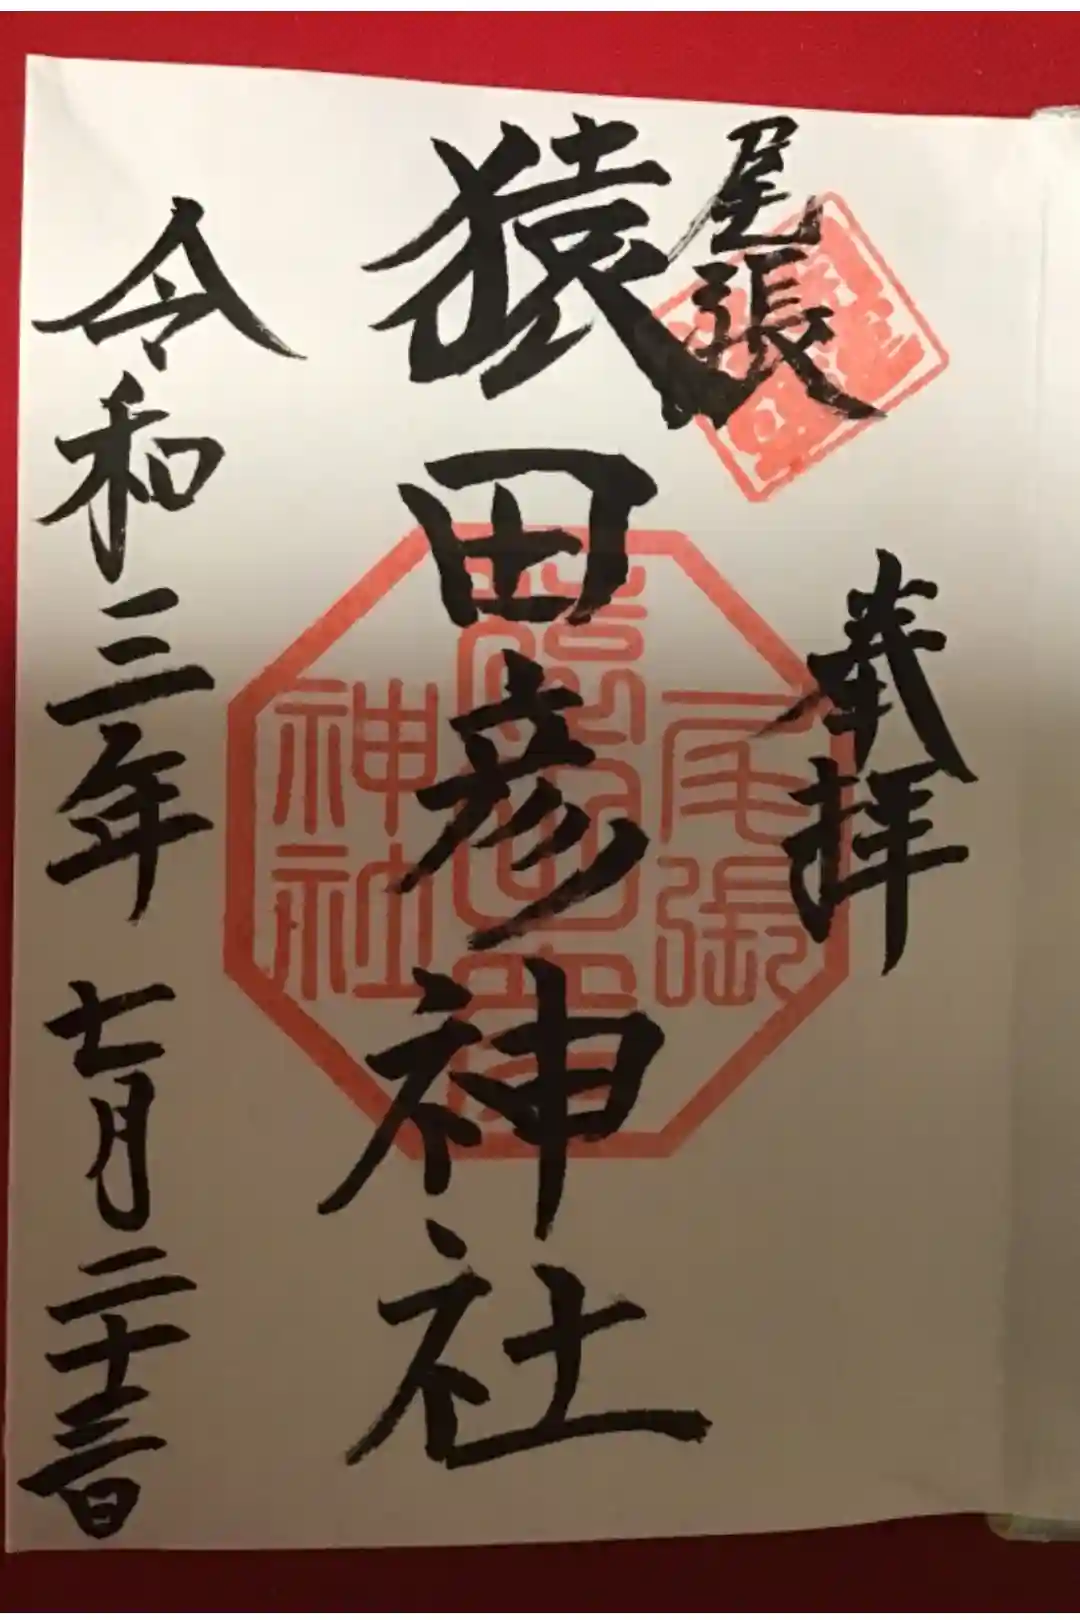 奉拝
尾張
猿田彦神社
令和三年 七月二十三日
尾張
猿田彦
神社